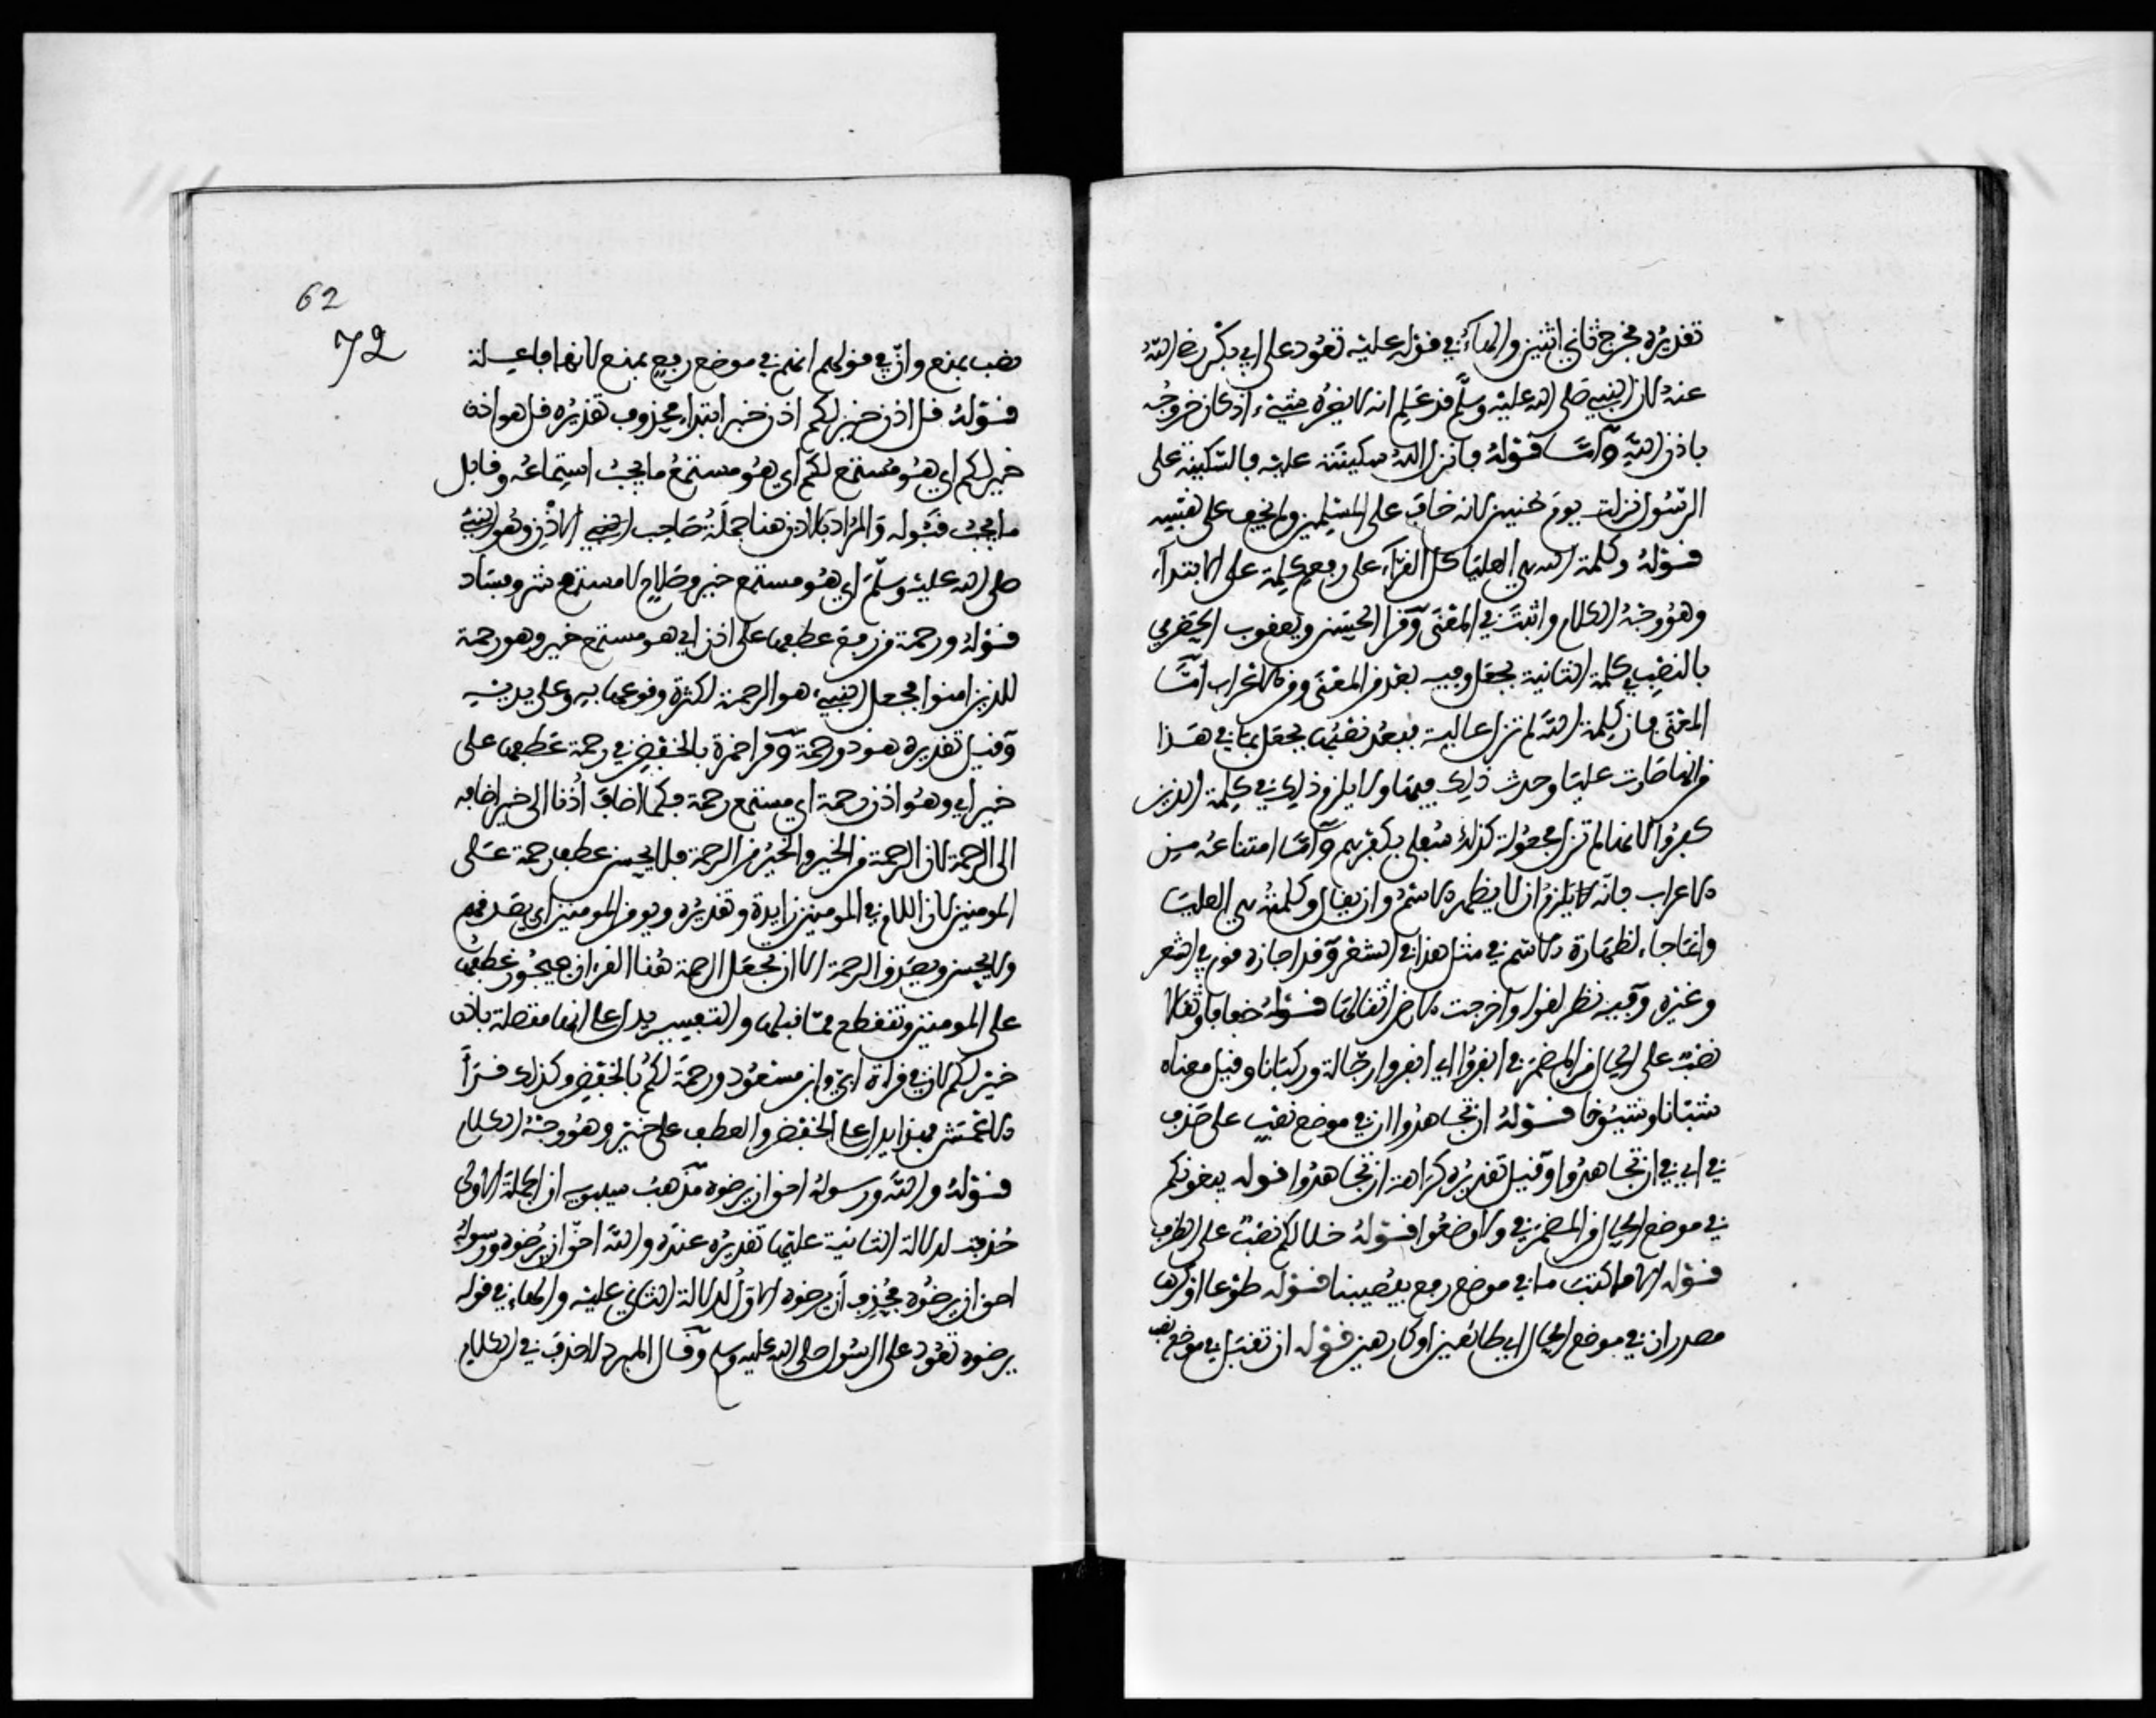 تقديره فخرج ثاني اثنين والهاء في قوله عليه تعود على ابي بكر رضي الله
عنه لان النبي صلى الله عليه وسلم قد علم انه لا يضره شيء اذ كان خروجه
باذن الله وأما قوله فانزل الله سكينته عليه فالسكينة على
الرسول نزلت يوم حنين لانه خاف على المسلمين ولم يخف على نفسه
قوله وكلمة الله هي العليا كل القراء على رفع كلمة على الابتداء
وهو وجه الكلام واثبت في المعنى وقرا الحسن ويعقوب الحضرمي
بالنصب في كلمة الثانية بجعل وفيه بعد من المعنى ومن الاعراب أما
المعنى فان كلمة الله لم تزل عالية فيبعد نصبها بجعل لما في هذا
من انها صارت عليا وحدث ذلك فيها ولا يلزم ذلك في كلمة الذين
كفروا لانها لم تزل مجعولة كذلك سفلى بكفرهم وأما امتناعه من
الاعراب فانه يلزم ان لا يظهر الاسم وان يقال وكلمته هي العليا
وانما جاء لظهارة الاسم في مثل هذا في الشعر وقد اجازه قوم في الشعر
وغيره وفيه نظر لقوله وأخرجت الارض اثقالها قوله خفافا وثقالا
نصب على الحال من المضمر في انفروا اي انفروا رجالة وركبانا وقيل معناه
شبانا وشيوخا قوله ان تجاهدوا ان في موضع نصب على حذف
في اي في ان تجاهدوا وقيل تقديره كراهة ان تجاهدوا قوله يبغونكم
في موضع الحال من المضمر في ولاوضعوا قوله خلالكم نصب على الظرف
قوله الا ما كتب ما في موضع رفع بيصيبنا قوله طوعا او كرها
مصدران في موضع الحال اي طائعين او كارهين قوله ان تقبل في موضع نصب
62
72
نصب بمنع وان في قولهم انهم في موضع رفع بمنع لانها فاعلة
قوله قل اذن خير لكم اذن خبر ابتداء محذوف تقديره قل هو اذن
خير لكم اي هو مستمع لكم اي هو مستمع ما يجب استماعه وقابل
ما يجب قبوله والمراد بالاذن هنا جملة صاحب الاذن وهو النبي
صلى الله عليه وسلم اي هو مستمع خير وصلاح لا مستمع شر وفساد
قوله ورحمة من رفع عطفها على اذن اي هو مستمع خير وهو رحمة
للذين امنوا فجعل النبي هو الرحمة لكثرة وقوعها به وعلى يديه
وقيل تقديره هو ذو رحمة وقرا حمزة بالخفض في رحمة عطفها على
خير اي وهو اذن رحمة اي مستمع رحمة فكما اضاف أذنا الى خير اضافه
الى الرحمة لان الرحمة من الخير والخير من الرحمة فلا يحسن عطف رحمة على
المومنين لان اللام في المومنين زايدة وتقديره ويومن المومنين اي يصدقهم
ولا يحسن ويصدق الرحمة الا ان تجعل الرحمة هنا القرءان فيجوز عطفها
على المومنين وتنقطع مما قبلها والتفسير يدل على انها متصلة باذن
خير لكم لان في قراة ابي وابن مسعود ورحمة لكم بالخفض وكذلك قرأ
الاعمش فهذا يدل على الخفض والعطف على خير وهو وجه الكلام
قوله والله ورسوله احق ان يرضوه مذهب سيبويه ان الجملة الاولى
حذفت لدلالة الثانية عليها تقديره عنده والله احق ان يرضوه ورسوله
احق ان يرضوه فحذف أن يرضوه الاول لدلالة الثاني عليه والهاء في قوله
يرضوه تعود على الرسول صلى الله عليه وسلم وقال المبرد لا حذف في الكلام